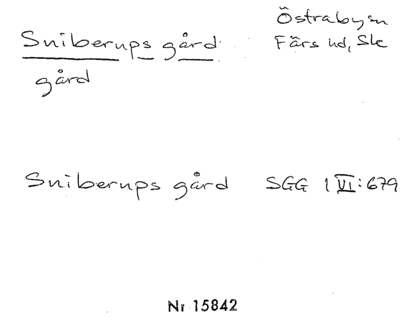 Sniberups gård
Östraby sn
Färs hd, Sk
gård
Sniberups gård SGG 1 VI: 679
Nr 15842